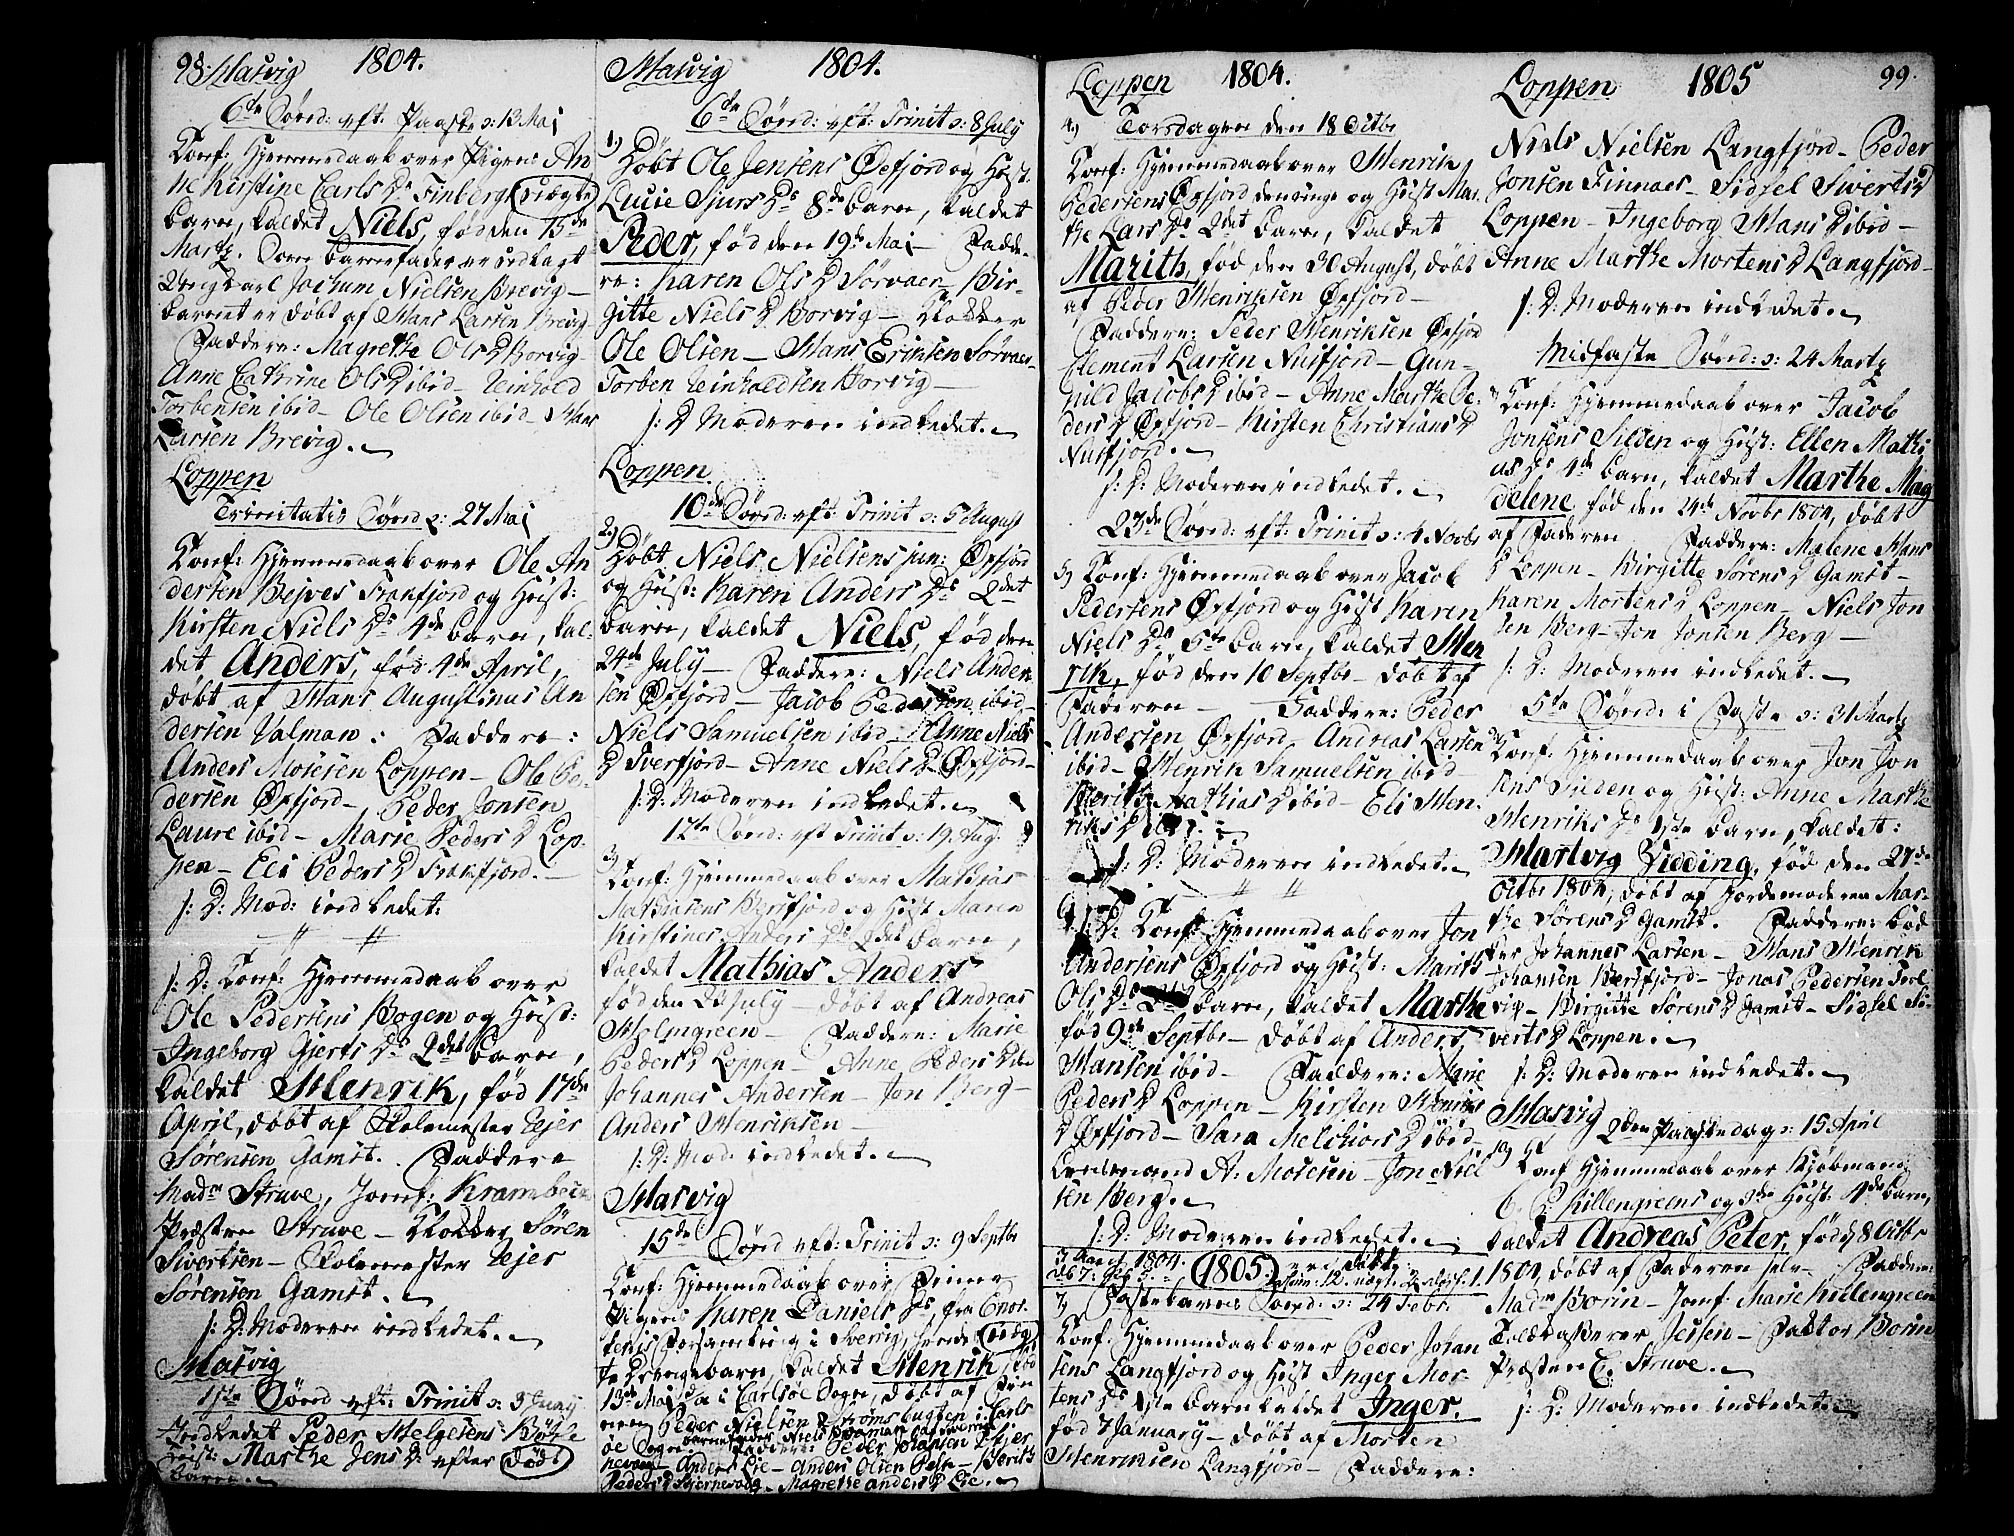 98. Hasvig 1804.
6te Sønd: eft: Paaske ɔ: 13 Maj
Conf: Hjemmedaab over Pigen An
ne Kirstine Carls D. Finberg uægte
barn, kaldet Niels, fød den 15de
Martz. Som barnefader er udlagt
Ungkarl Jochum Nielsen Brevig –
barnet er døbt af Hans Larsen Brevig
Faddere: Magrethe Ols D Borvig
Anne Cathrine Ols D ibid – Reinhold
Torbensen ibid – Ole Olsen ibid – Hans
Larsen Brevig.
Loppen
Trinitatis Sønd ɔ: 27 Maj
Conf: Hjemmedaab over Ole An
dersen Bejves Frakfjord og Hust:
Kirsten Niels Ds 4de barn, kal-
det Anders, fød 4de April,
døbt af Hans Augustinus An
dersen Valman. Faddere:
Anders Mosesen Loppen – Ole Pe-
dersen Øxfjord – Peder Jonsen
Laure ibid – Marie Peders D Lop-
pen – Eli Peders D Frakfjord.
s: D: Mod: indledet.
s: D: Conf: Hjemmedaab over
Ole Pedersens Bogen og Hust:
Ingeborg Gjerts Ds 2det barn,
kaldet Henrik, fød 17de
April, døbt af Skolemester Ejer
Sørensen Gamst. Faddere
Madm Struve, Jomf: Krambeck
Præsten Struve – Klokker Søren
Sivertsen – Skolemester Ejer
Sørensen Gamst.
s: D: Moderen indledet.
Hasvig
1ste Sønd eft: Trinit ɔ: 3 Juny
Indledet Peder Helgesens
Hust: Marthe Jens D: efter dødt
barn.
Hasvig 1804.
6te Sønd: eft: Trinit ɔ: 8 July
1) Døbt Ole Jensens Øxfjord og Hust.
Lucie Sjurs Ds 8de barn, kaldet
Peder, fød den 19de Maj – Fadde-
re: Karen Ols D Sørvaer – Bir-
gitte Niels D. Borvig – Klokker
Ole Olsen – Hans Eriksen Sørvaer –
Torben Reinholdsen Borvig –
s: D Moderen indledet.
Loppen
10de Sønd: eft: Trinit ɔ: 5 August
2) Døbt Niels Nielsens jun: Øxfjord
og Hust: Karen Anders Ds 2det
barn, kaldet Niels, fød den
24de July – Faddere: Niels Ander
sen Øxfjord – Jacob Pedersen ibid –
Niels Samuelsen ibid – Anne Niels
D Tverfjord – Anne Niels D Øxfjord –
s: D: Moderen indledet.
12te Sønd: eft Trinit ɔ: 19 Aug:
3) Conf: Hjemmedaab over Mathias
Mathiasens Bersfjord og Hust Maren
Kirstines Anders Ds 2det barn,
kaldet Mathias Anders
fød den July – døbt af Andreas
Holmgreen – Faddere: Marie
Peders D Loppen – Anne Peders D ibid
Johannes Andersen – Jon Berg –
Anders Henriksen –
s: D: Mod: indledet.
Hasvig
15de Sønd eft: Trinit ɔ: 9 Septbr
Conf: Hjemmedaab over Finne
Pigens Karen Daniels Ds fra Enon-
tekis Forsamling i Sverrig, hendes uæg-
te barn, kaldet Henrik fød
13de Maj i Carlsøe Sogn, døbt af Fin
nen Peder Nielsen Strømsbugten i Carls
øe Sogn. Faddere: Peder Johansen Stjer
nevaag – Anders Lie – Anders Olsen – Berith
Peders D Stjernevaag – Magrethe Anders D Lie.
Loppen 1804.
4) Torsdagen den 18 Octbr
Conf: Hjemmedaab over Henrik
Pedersens Øxfjord den unge og Hust Mar-
the Lars Ds 2det barn, kaldet
Marith, fød den 30 August, døbt
af Peder Henriksen Øxfjord –
Faddere: Peder Henriksen Øxfjord
Clement Larsen Nusfjord – Gun-
hild Jacobs D ibid – Anne Marthe Pe-
ders D Øxfjord – Kirsten Christians D
Nusfjord.
s: D: Moderen indledet.
23de Sønd: eft: Trinit ɔ: 4 Novbr
5) Conf: Hjemmedaab over Jacob
Pedersens Øxfjord og Hust Karen
Niels Ds 5te barn, kaldet Hen
rik, fød den 10 Septbr – døbt af
Faderen – Faddere: Peder
Andersen Øxfjord – Andreas Larsen
ibid – Henrik Samuelsen ibid –
Berith Mathias D ibid – Eli Hen-
riks D ibid.
s: D: Moderen indledet.
6) s: D: Conf: Hjemmedaab over Jon
Andersens Øxfjord og Hust: Marith
Ols Ds barn, kaldet Marthe
fød 9de Septbr – døbt af Anders
Hansen ibid – Faddere: Marie
Peders D Loppen – Kirsten Henriks
D Øxfjord – Sara Melchiors D ibid –
Ferdinand A: Mosesen – Jon Niel
sen Berg.
s: D: Moderen indledet.
1805.
7) Fastelavns Sønd: ɔ: 24 Febr.
Conf: Hjemmedaab over Peder Johan
sens Langfjord og Hust Inger Mor-
tens Ds 1ste barn kaldet Inger,
fød 7 January – døbt af Morten
Henriksen Langfjord – Faddere:
Loppen 1805 99.
Niels Nielsen Langfjord – Peder
Jonsen Finnaes – Sidsel Siverts D
Loppen – Ingeborg Hans D ibid –
Anne Marthe Mortens D Langfjord –
s: D: Moderen indledet.
Midfaste Sønd: ɔ: 24 Martz
Conf: Hjemmedaab over Jacob
Jonsens Silden og Hust: Ellen Mathi
as Ds 4de barn, kaldet Marthe Mag
delene fød den 24de Novbr 1804, døbt
af Faderen Faddere: Malene Hans
D Loppen – Birgitte Sørens D Gamst –
Karen Mortens D Loppen – Niels Jon
sen Berg – Jon Jonsen Berg –
s: D: Moderen indledet.
5te Sønd: i Faste ɔ: 31 Martz
Conf: Hjemmedaab over Jon Jon
sens Silden og Hust: Anne Marthe
Henriks Ds 1ste barn, kaldet:
Hartvig Fieding, fød den 27de
Octbr 1804, døbt af Jordemoderen Mar-
the Sørens D Gamst. Faddere: Bød
ker Johannes Larsen – Hans Henrik
Johansen Bersfjord – Jonas Pedersen
vig – Birgitte Sørens D Gamst – Sidsel Si-
verts D Loppen.
s: D: Moderen indledet.
Hasvig
2den Paaskedag ɔ: 15 April
Conf Hjemmedaab over Kjøbmand
C. P. Killengreens og Hust: 4de barn,
kaldet Andreas Peter, fød 8 Octbr
1804, døbt af Faderen selv – Faddere:
Madm Borin – Jomf Marie Killengreen
Toldkasserer Jessen – Factor Borin
Præsten E. Struve.
s: D: Moderen indledet.